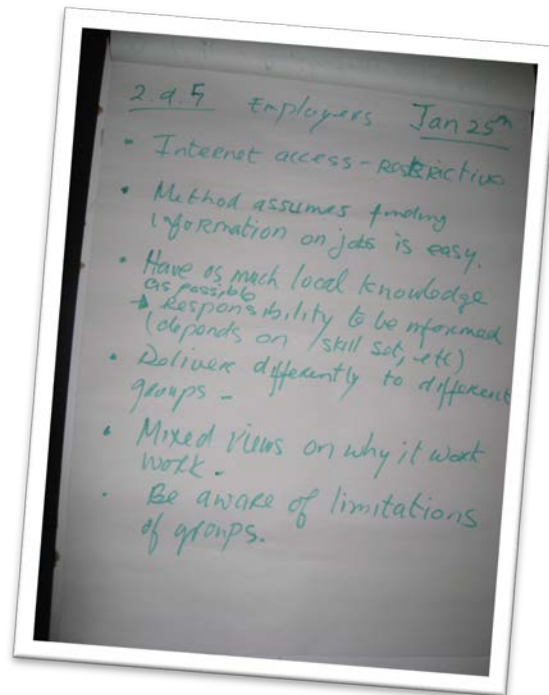 2.a.5 Employers Jan 25th
• Internet access - restrictive
• Method assumes finding
information on jobs is easy.
• Have as much local knowledge
as possible
→ Responsibility to be informed
(depends on /skill set, etc)
• Deliver differently to different
groups -
• Mixed views on why it wont
work.
• Be aware of limitations
of groups.